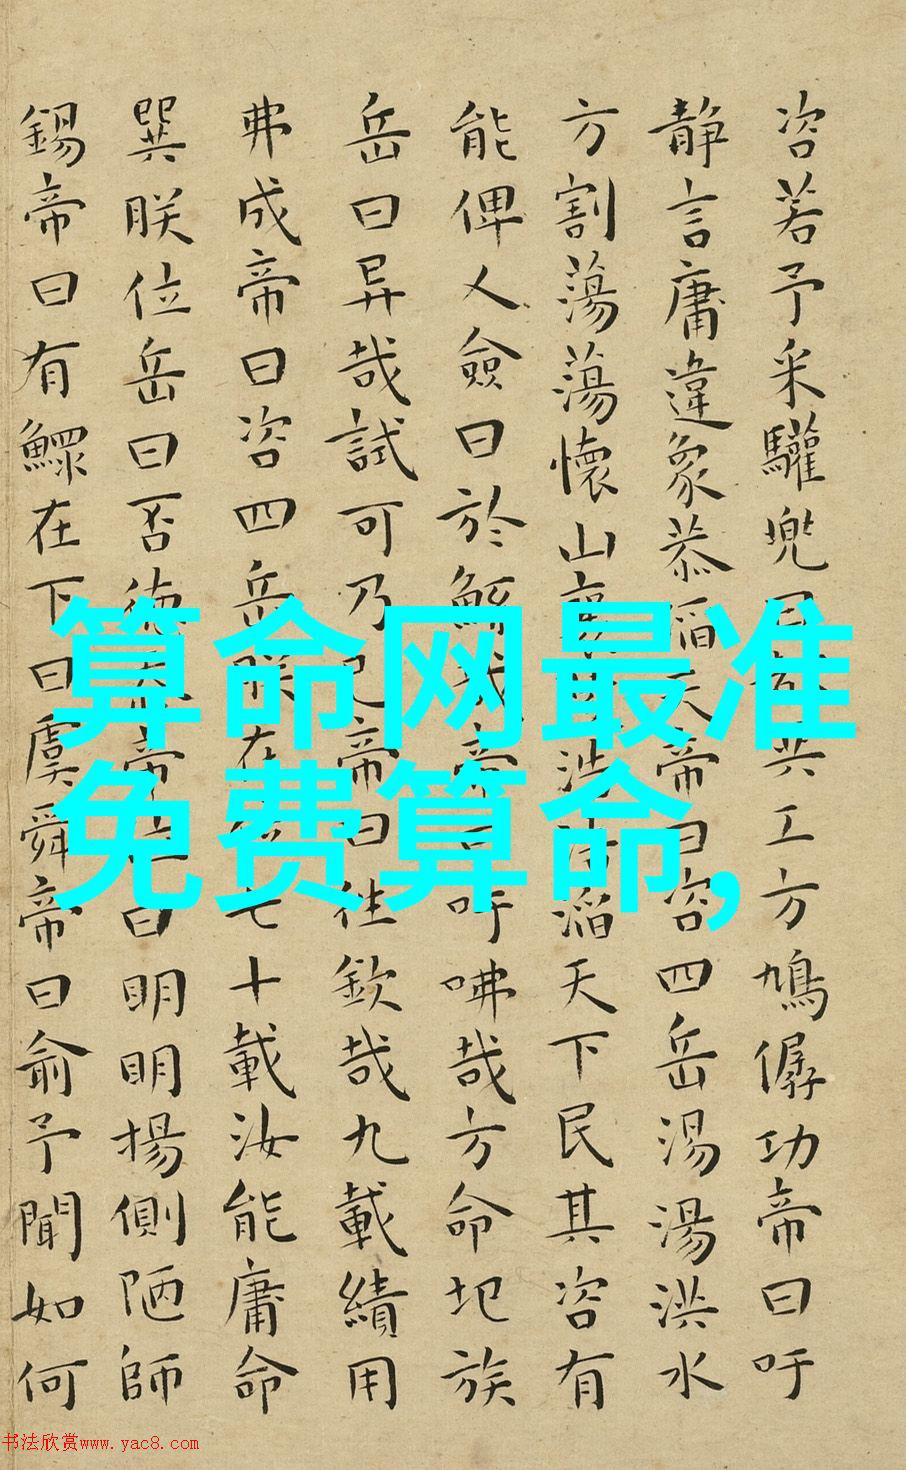 咨若予采驩兜曰都共工方鳩僝功帝曰吁
静言庸違象恭滔天帝曰咨四岳湯湯洪水
方割蕩蕩懷山襄浩浩滔天下民其咨有
能俾乂僉曰於鯀哉帝曰吁咈哉方命圮族
岳曰异哉試可乃已帝曰往欽哉九載績用
弗成帝曰咨四岳朕在位七十載汝能庸命
巽朕位岳曰否德忝帝位曰明明揚側陋師
錫帝曰有鰥在下曰虞舜帝曰俞予聞如何
算命网最准
免费算命,
书法欣赏www.yac8.com